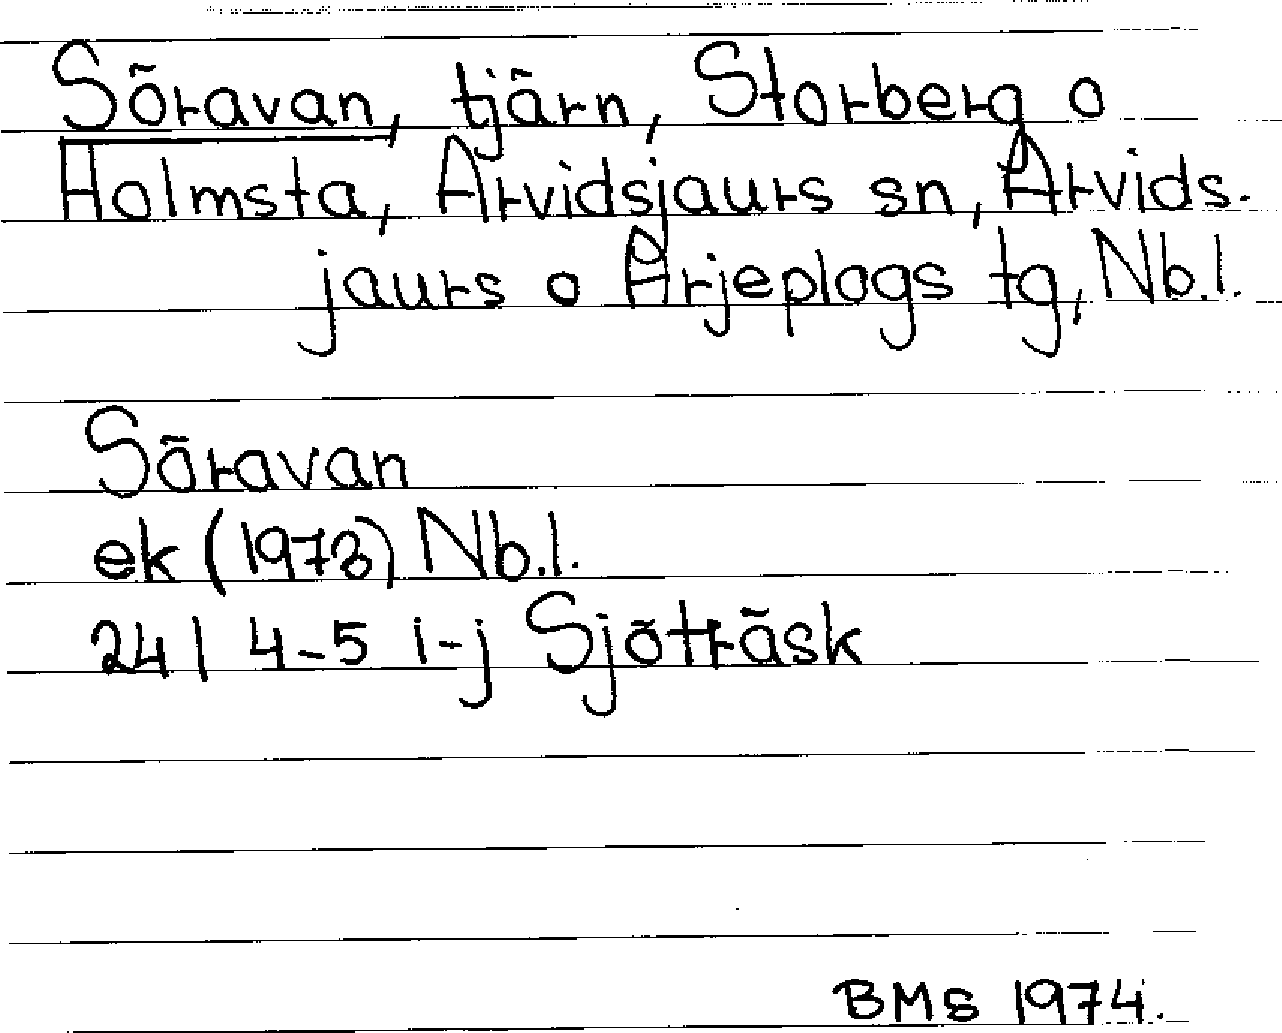 Söravan, tjärn, Storberg o
Holmsta, Arvidsjaurs sn, Arvids-
jaurs o Arjeplogs tg, Nb.l.
Söravan
ek (1973) Nb.l.
24 I 4-5 i-j Sjöträsk
BMS 1974.